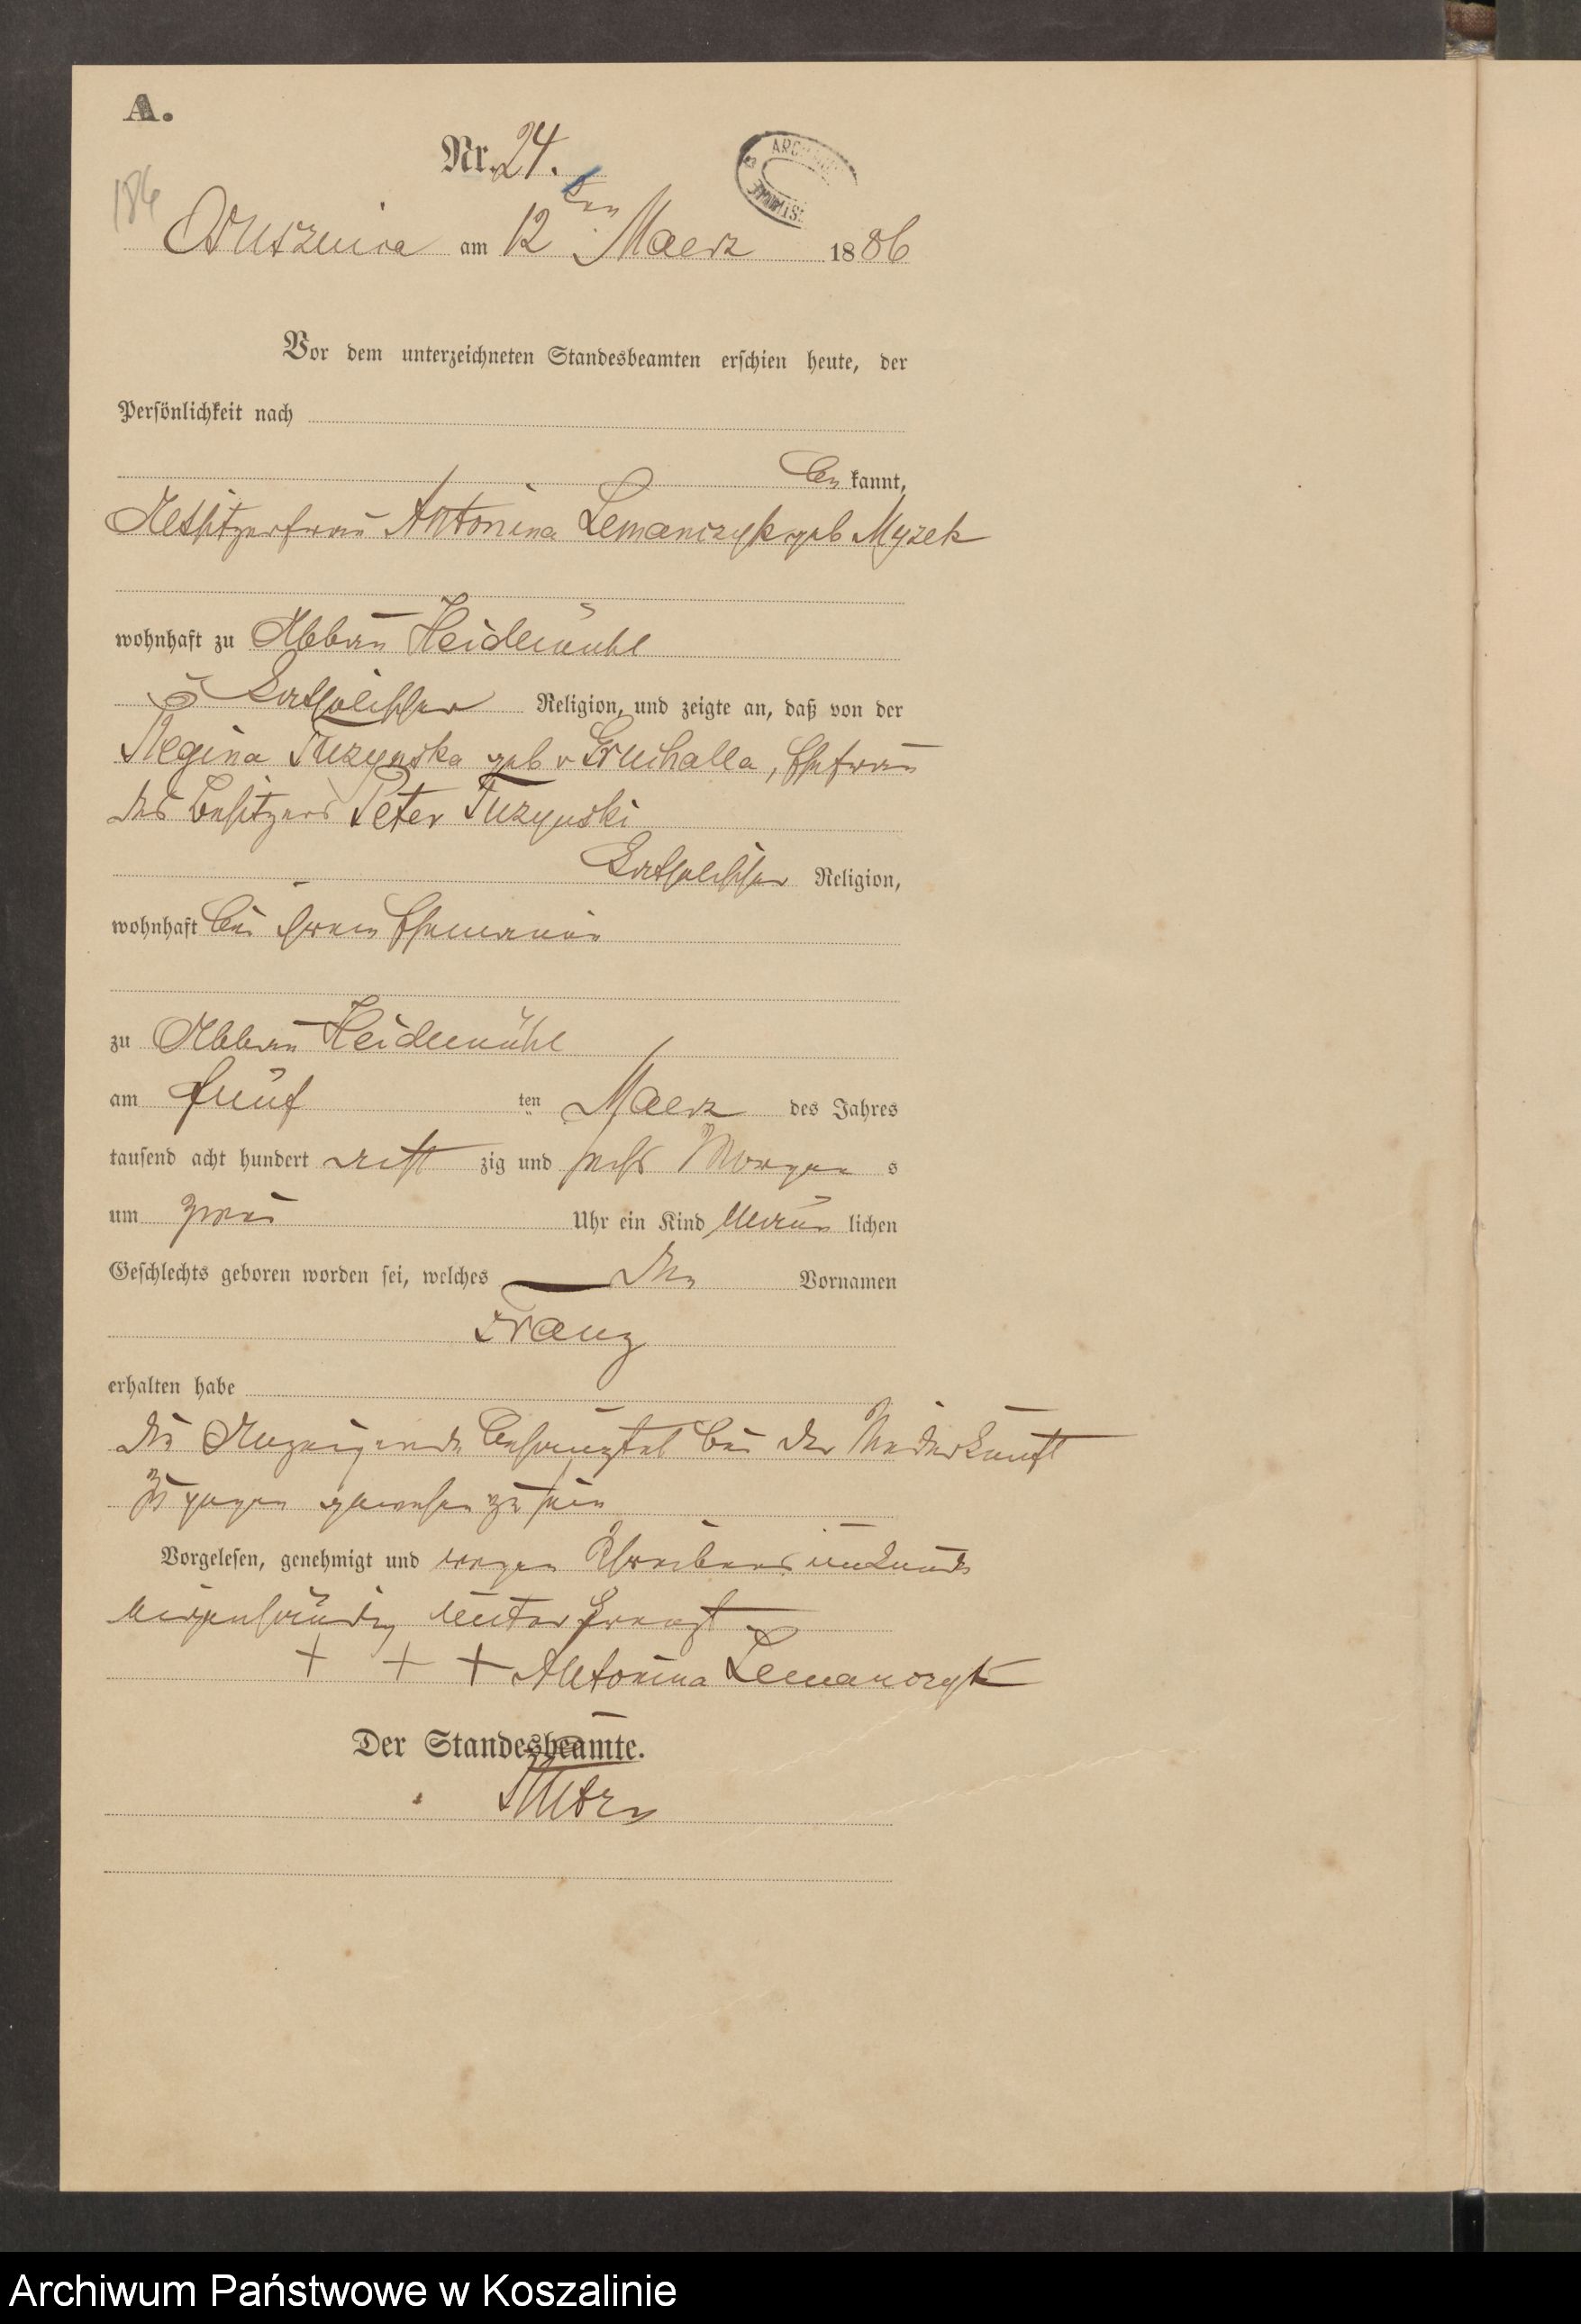 A.
Nr. 24.
186
am 12 ten Maerz 1886
Vor dem unterzeichneten Standesbeamten erschien heute, der
Persönlichkeit nach
be kannt,
Antonina Lemanczyk geb Myzek
wohnhaft zu Abbau Heidemühl
katholischer Religion, und zeigte an, daß von der
Regina Tuzynska geb v Gruchalla, Ehefrau
des Besitzers Peter Tuzynski
katholischer Religion,
wohnhaft bei ihrem Ehemann
zu Abbau Heidemühl
am fünf ten Maerz des Jahres
tausend acht hundert acht zig und sechs Morgen s
um zwei Uhr ein Kind männ lichen
Geschlechts geboren worden sei, welches den Vornamen
Franz
erhalten habe
die Anzeigende behauptet bei der Niederkunft
zugegen gewesen zu sein
Vorgelesen, genehmigt und wegen Schreibensunkunde
eigenhändig unterkreuzt
+ + + Antonina Lemanczyk
Der Standesbeamte.
Archiwum Państwowe w Koszalinie